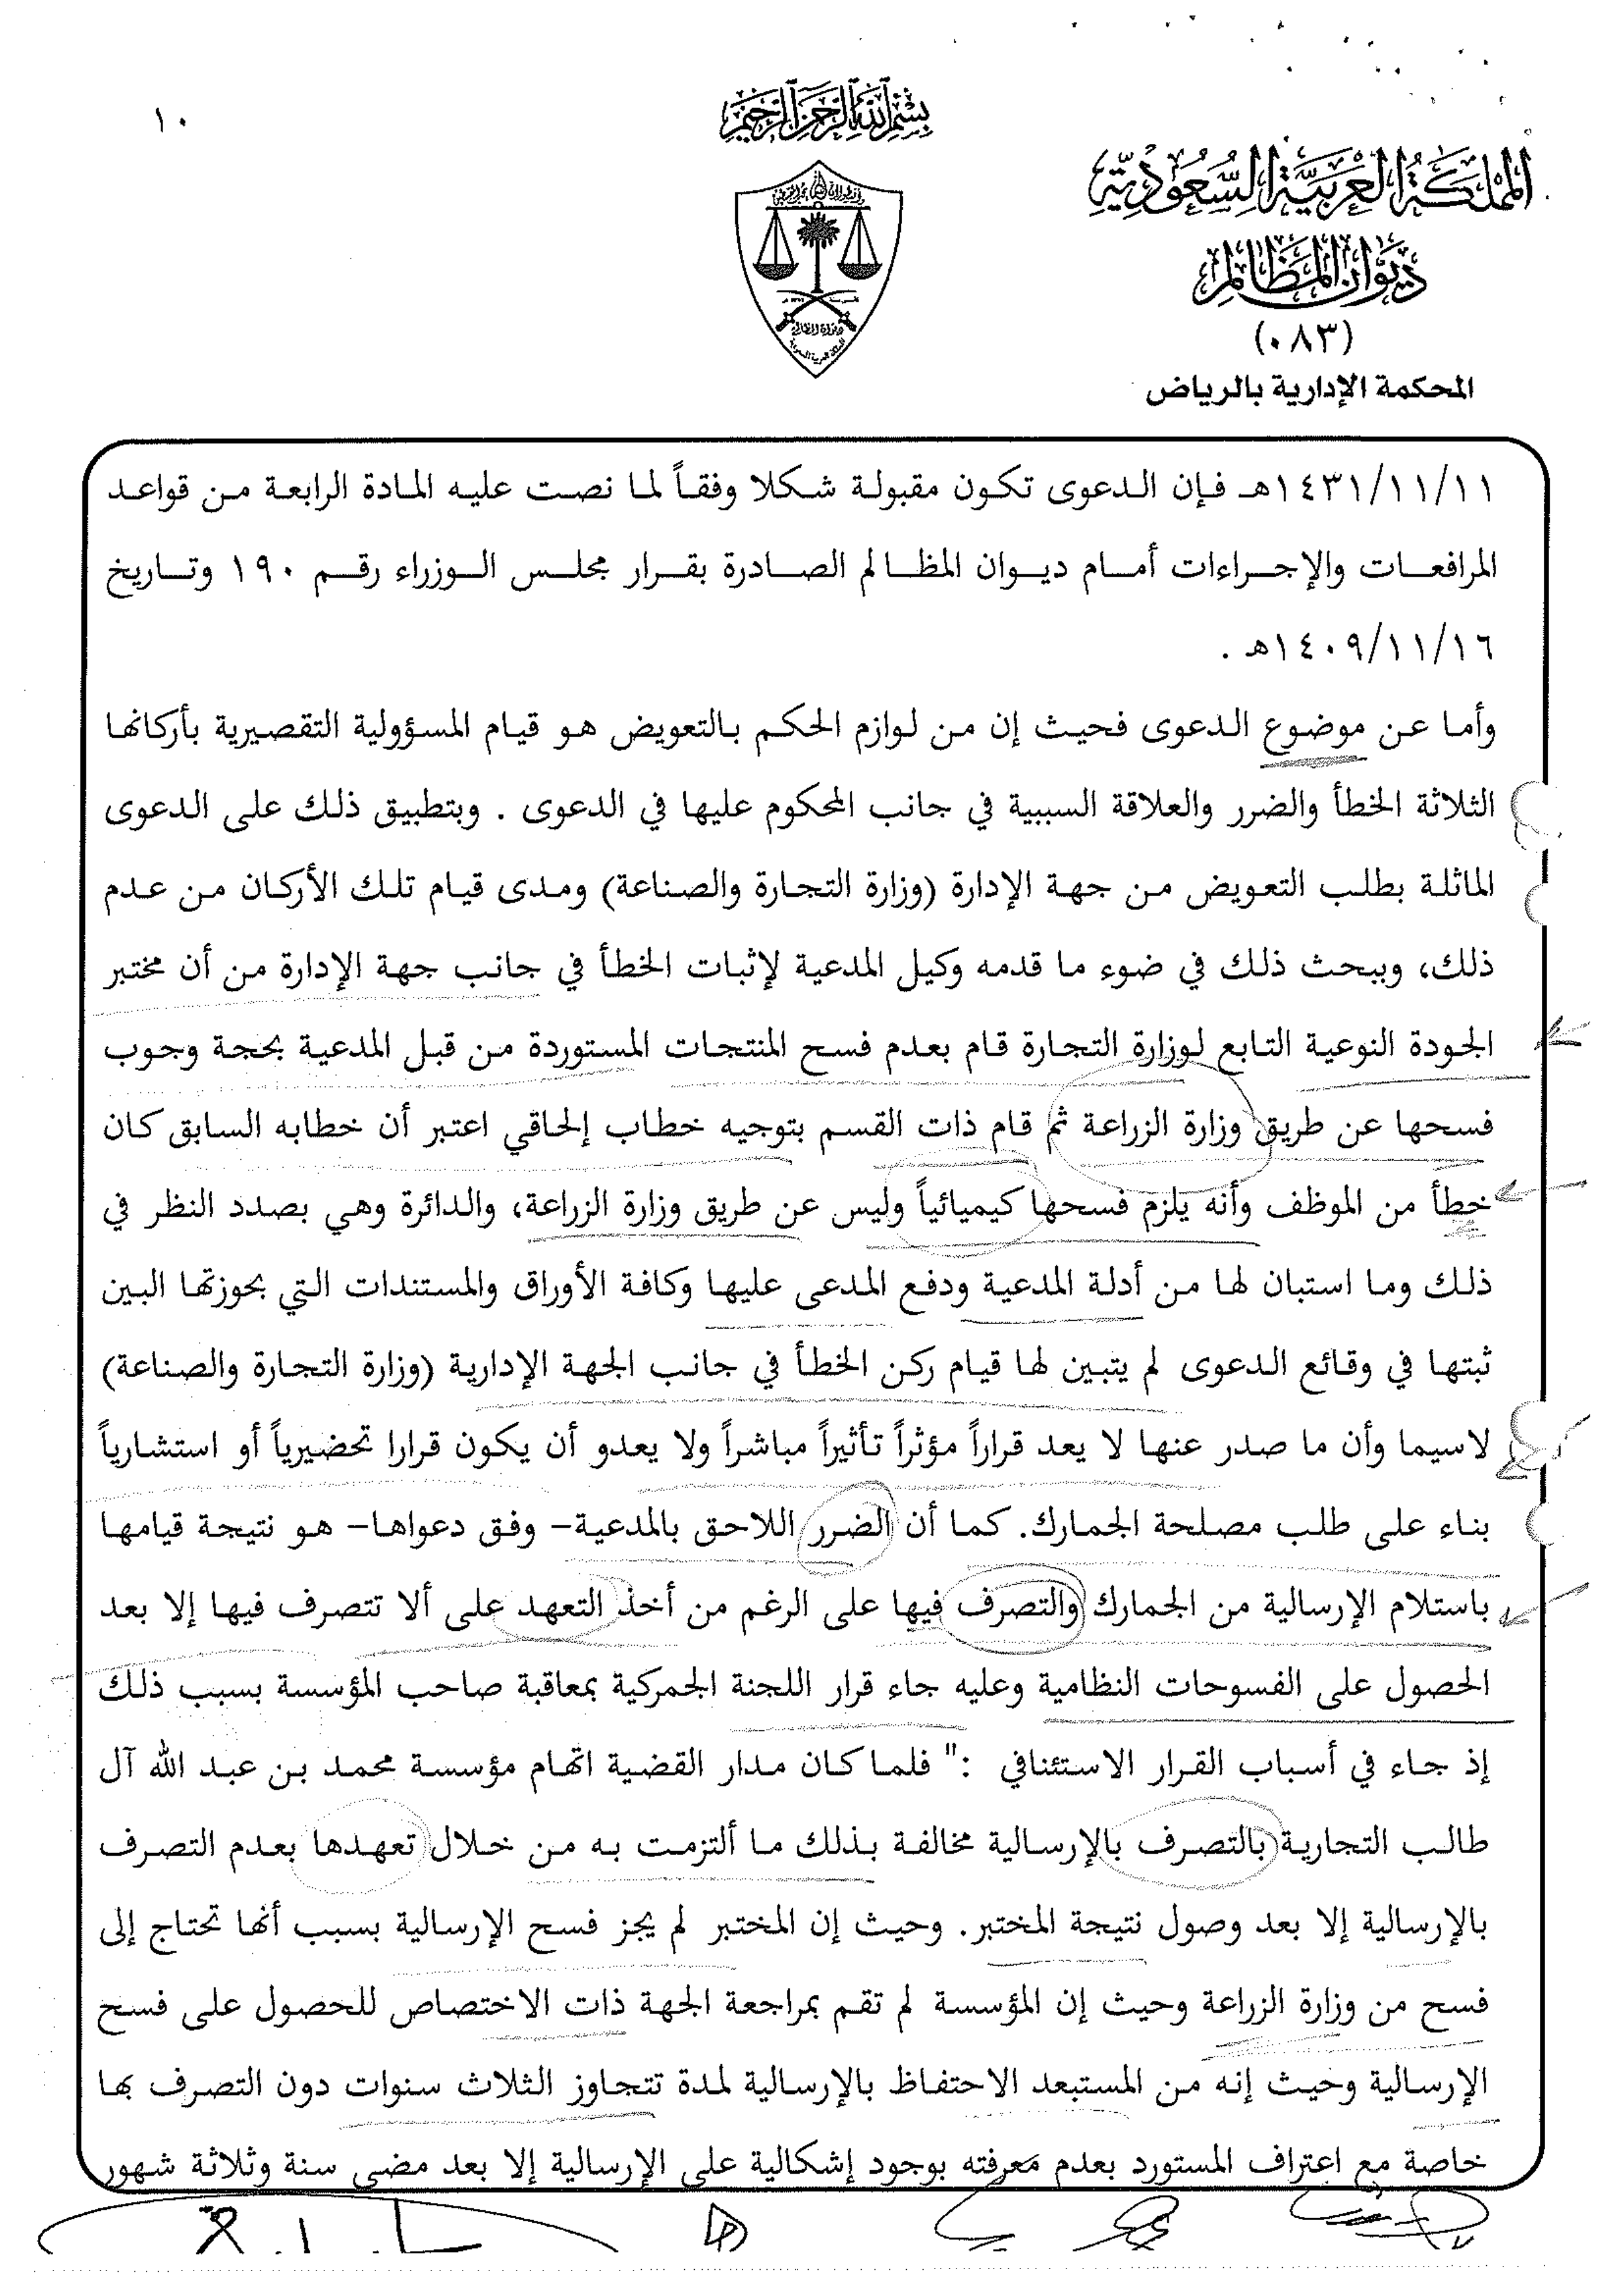 ١٠
بسم الله الرحمن الرحيم
المملكة العربية السعودية
ديوان المظالم
(٠٨٣)
المحكمة الإدارية بالرياض
١٤٣١/١١/١١هـ فإن الدعوى تكون مقبولة شكلا وفقاً لما نصت عليه المادة الرابعة من قواعد
المرافعات والإجراءات أمام ديوان المظالم الصادرة بقرار مجلس الوزراء رقم ١٩٠ وتاريخ
١٤٠٩/١١/١٦هـ .
وأما عن موضوع الدعوى فحيث إن من لوازم الحكم بالتعويض هو قيام المسؤولية التقصيرية بأركانها
الثلاثة الخطأ والضرر والعلاقة السببية في جانب المحكوم عليها في الدعوى . وبتطبيق ذلك على الدعوى
الماثلة بطلب التعويض من جهة الإدارة (وزارة التجارة والصناعة) ومدى قيام تلك الأركان من عدم
ذلك، وببحث ذلك في ضوء ما قدمه وكيل المدعية لإثبات الخطأ في جانب جهة الإدارة من أن مختبر
الجودة النوعية التابع لوزارة التجارة قام بعدم فسح المنتجات المستوردة من قبل المدعية بحجة وجوب
فسحها عن طريق وزارة الزراعة ثم قام ذات القسم بتوجيه خطاب إلحاقي اعتبر أن خطابه السابق كان
خطأ من الموظف وأنه يلزم فسحها كيميائياً وليس عن طريق وزارة الزراعة، والدائرة وهي بصدد النظر في
ذلك وما استبان لها من أدلة المدعية ودفع المدعى عليها وكافة الأوراق والمستندات التي بحوزتها البين
ثبتها في وقائع الدعوى لم يتبين لها قيام ركن الخطأ في جانب الجهة الإدارية (وزارة التجارة والصناعة)
لاسيما وأن ما صدر عنها لا يعد قراراً مؤثراً تأثيراً مباشراً ولا يعدو أن يكون قرارا تحضيرياً أو استشارياً
بناء على طلب مصلحة الجمارك. كما أن الضرر اللاحق بالمدعية– وفق دعواها– هو نتيجة قيامها
باستلام الإرسالية من الجمارك والتصرف فيها على الرغم من أخذ التعهد على ألا تتصرف فيها إلا بعد
الحصول على الفسوحات النظامية وعليه جاء قرار اللجنة الجمركية بمعاقبة صاحب المؤسسة بسبب ذلك
إذ جاء في أسباب القرار الاستئنافي :" فلما كان مدار القضية اتهام مؤسسة محمد بن عبد الله آل
طالب التجارية بالتصرف بالإرسالية مخالفة بذلك ما ألتزمت به من خلال تعهدها بعدم التصرف
بالإرسالية إلا بعد وصول نتيجة المختبر. وحيث إن المختبر لم يجز فسح الإرسالية بسبب أنها تحتاج إلى
فسح من وزارة الزراعة وحيث إن المؤسسة لم تقم بمراجعة الجهة ذات الاختصاص للحصول على فسح
الإرسالية وحيث إنه من المستبعد الاحتفاظ بالإرسالية لمدة تتجاوز الثلاث سنوات دون التصرف بها
خاصة مع اعتراف المستورد بعدم معرفته بوجود إشكالية على الإرسالية إلا بعد مضي سنة وثلاثة شهور